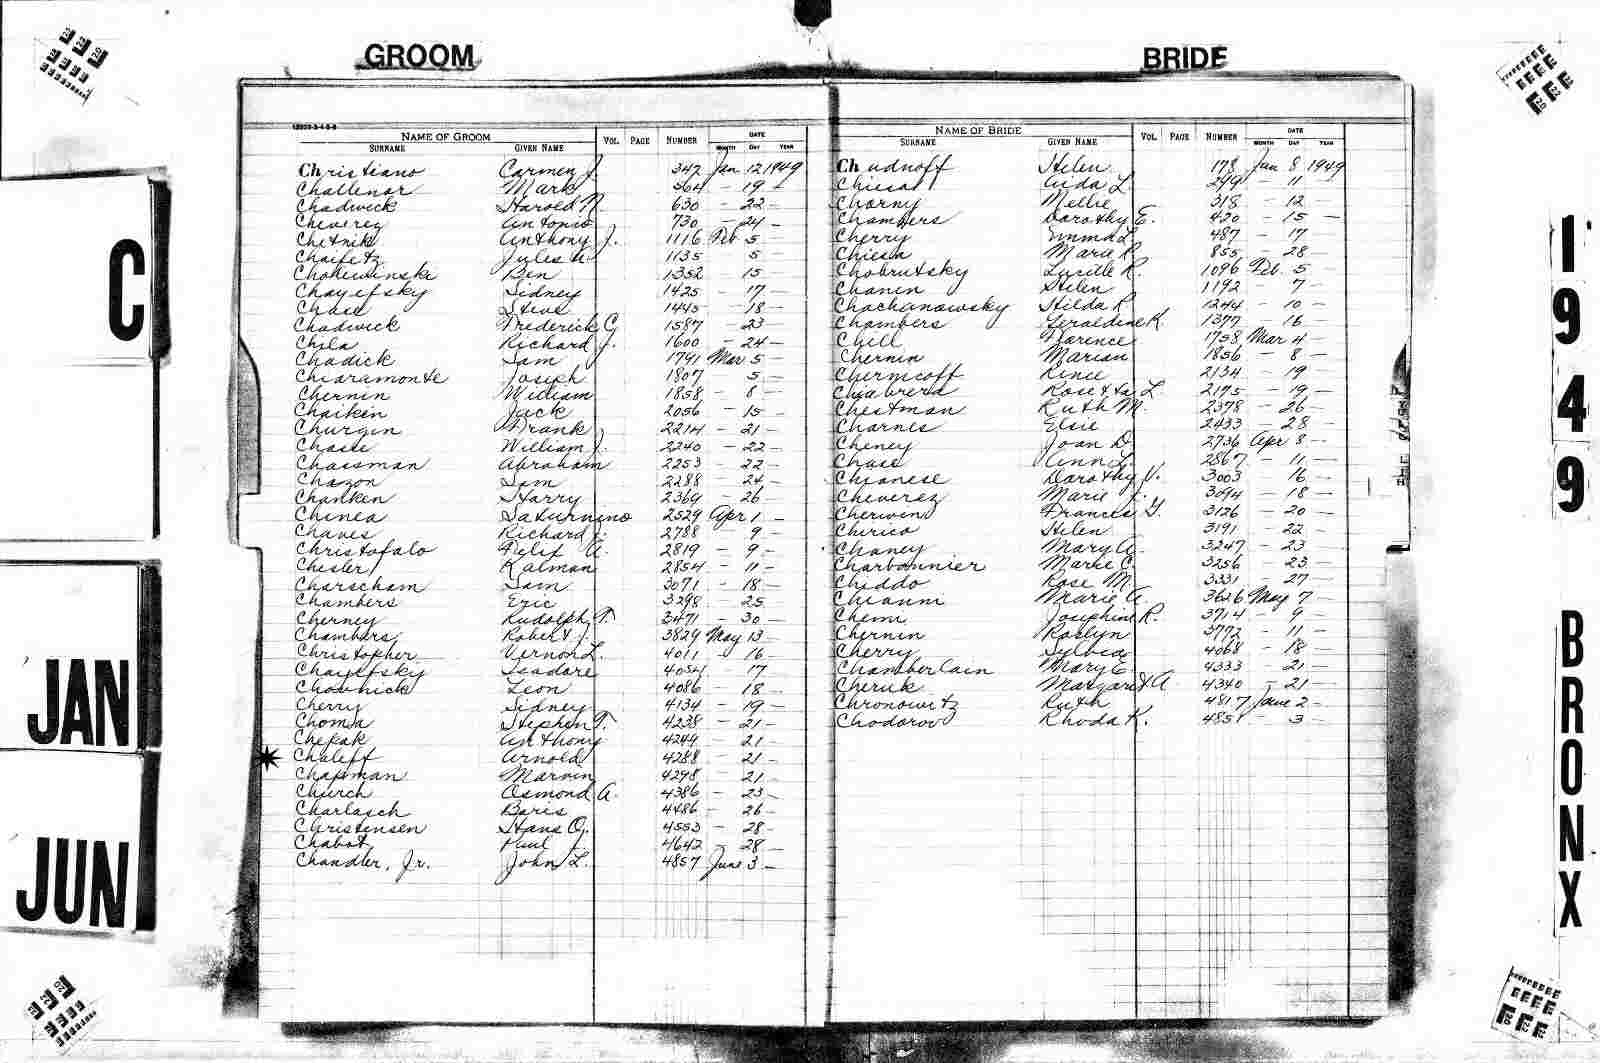 GROOM
BRIDE
C
JAN
JUN
1949
BRONX
NAME OF GROOM VOL. PAGE NUMBER DATE
SURNAME GIVEN NAME MONTH DAY YEAR
Christiano Carmen J. 347 Jan 12 1949
Challenor Mark 564 - 19 -
Chadwick Harold N. 630 - 22 -
Cheverez Antonio 730 - 24 -
Chetnik Anthony J. 1116 Feb 5 -
Chaifetz Jules A. 1135 5 -
Ben 1352 - 15 -
Chayefsky Sidney 1425 - 17 -
Chase Steve 1445 - 18 -
Chadwick Frederick G. 1587 - 23 -
Chila Richard J. 1600 - 24 -
Chadick Sam 1791 Mar 5 -
Chiaramonte Joseph 1807 5 -
Chernin William 1858 - 8 -
Chaiken Jack 2056 - 15 -
Churgin Frank 2214 - 21 -
Chasse William J. 2240 - 22 -
Chassman Abraham 2253 - 22 -
Chazon Sam 2288 - 24 -
Chanken Harry 2369 - 26 -
Chinea Saturnino 2529 Apr 1 -
Chaves Richard J. 2788 - 9 -
Christofalo Felix A. 2819 - 9 -
Chesler Kalman 2854 - 11 -
Charscham Sam 3071 - 18 -
Chambers Eric 3298 - 25 -
Cherney Rudolph T. 3471 - 30 -
Chambers Robert J. 3829 May 13 -
Christopher Vernon L. 4011 - 16 -
Chayefsky Isadore 4054 - 17
Chovnick Leon 4086 - 18 -
Cherry Sidney 4134 - 19 -
Choma Stephen T. 4238 - 21 -
Chepak Anthony 4244 - 21
Chaleff Arnold 4288 - 21 -
Chapman Marvin 4298 - 21 -
Church Osmond A. 4386 - 23 -
Charlasch Boris 4486 - 26 -
Christensen Hans O. 4553 - 28 -
Chabot Paul J. 4642 - 28 -
Chandler, Jr. John L. 4857 June 3 -
NAME OF BRIDE VOL. PAGE NUMBER DATE
SURNAME GIVEN NAME MONTH DAY YEAR
Chudnoff Helen 178 Jan 8 1949
Chiesa Aida L. 299 - 11 -
Charny Mellie 318 - 12 -
Chambers Dorothy E. 420 - 15 -
Cherry Emma L. 487 - 17
Chiesa Marie R. 855 - 28 -
Chobrutsky Lucille R. 1096 Feb. 5 -
Chanin Helen 1192 - 7 -
Chachanowsky Hilda R. 1244 - 10 -
Chambers Geraldine K. 1377 - 16 -
Chill Florence 1758 Mar 4 -
Chernin Marian 1856 - 8 -
Chernicoff Renee 2134 - 19
Chabrera Rosetta L. 2175 - 19 -
Chestman Ruth M. 2378 - 26 -
Charnes Elsie 2433 - 28 -
Cheney Joan D. 2736 Apr 8 -
Chase Ann L. 2867 - 11 -
Chianese Dorothy V. 3003 - 16 -
Cheverez Marie 3094 - 18 -
Cherwin Frances Y. 3126 - 20 -
Cherico Helen 3191 - 22 -
Chaney Mary A. 3247 - 23
Charbonnier Marie C. 3256 - 23 -
Chiddo Rose M. 3331 - 27 -
Chianni Marie A. 3626 May 7 -
Chemi Josephine R. 3714 - 9 -
Chernin Roslyn 3772 - 11 -
Cherry Sylvia 4068 - 18 -
Chamberlain Mary E. 4333 - 21 -
Cheruk Margaret A. 4340 - 21 -
Chronowitz Ruth 4817 June 2 -
Chodorov Rhoda K. 4851 - 3 -